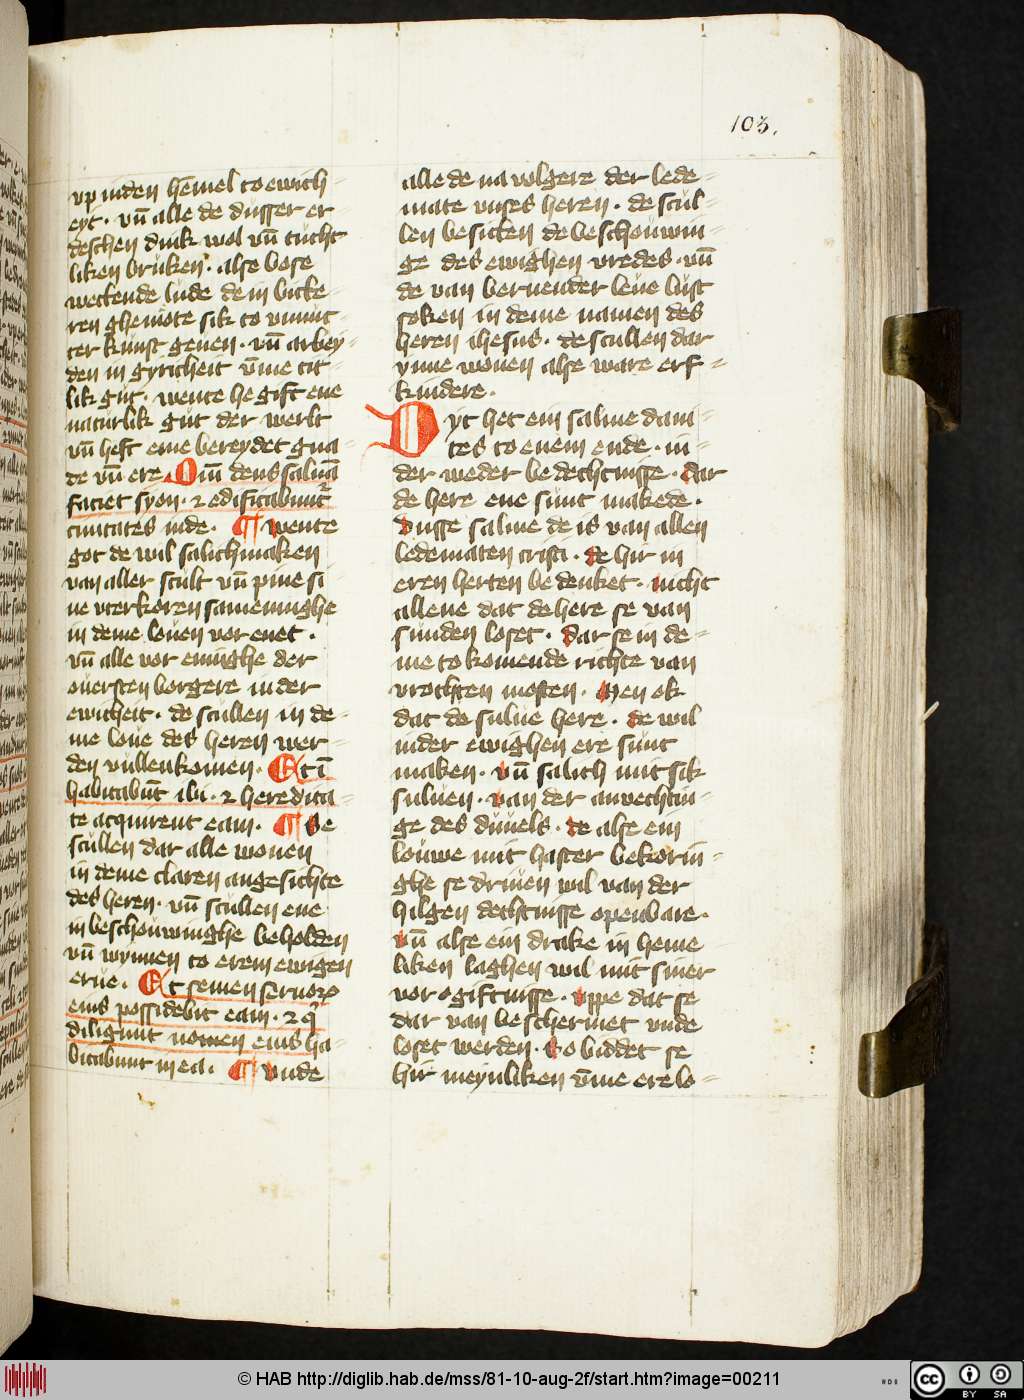 103.
vp in den hēmel to ewich-
eyt. vn̄ alle de dusser er-
deschen dink wol vn̄ tucht
liken bruken. alse bose
weckende lude de in bicke-
ren ghemote sik to vnnut-
ter kunst geuen. vn̄ arbey-
den in gyricheit vm̄e tit-
lik gut. wente he gift ene
naturlik gut der werlt
vn̄ heft ene bereydet gna-
de vn̄ ere. Qm̄ deus saluā
faciet syon. ⁊ edificabunt̄
ciuitates iude. ¶ wente
got de wil salich maken
van aller scult vn̄ pine si
ne vterkoren sameninghe
in deme louen vor enet.
vn̄ alle vor eninghe der
ouersten borgere in der
ewicheit. de scullen in de-
me loue des heren wer-
den vullenkomen. Et ī
habitabūt ibi. ⁊ heredita-
te acquirent eam. ¶ Se
scullen dar alle wonen
in deme claren angesichte
des heren. vn̄ scullen ene
in beschouwinghe beholden
vn̄ wynnen to erem ewigen
erue. Et semen seruoꝝ
eius possidebit eam. ⁊ q̄
diligunt nomen eius ha-
bitabunt in ea. ¶ vnde
alle de na volgere der lede-
mate vnses heren. de scul-
len besitten de beschouwin-
ge des ewighen vredes. vn̄
de van bernender leue lust
soken in deme namen des
heren ihesus. de scullen dar
ynne wonen alse ware erf-
kindere.
Dyt het ein salme daui-
tes to enem ende. in-
der weder bedechtnisse. dar
de here ene sunt makede.
Dusse salme de is van allen
ledematen cristi. de hir in
eren herten bedenket. nicht
allene dat de here se van
sunden loset. dar se in de-
me to komende richte van
vrochten mosten. Men ok
dat de sulue here. de wil
in der ewighen ere sunt
maken. vn̄ salich mit sik
suluen. van der anuechtin-
ge des duuels. de alse ein
louwe mit haster bekorin-
ghe se driuen wil van der
hilgen dechtnisse openbare.
vn̄ alse ein drake in heme-
liken laghen wil mit siner
vor giftnisse. vppe dat se
dar van beschermet vnde
loset werden. So biddet se
hir meynliken vm̄e ere lo-
© HAB http://diglib.hab.de/mss/81-10-aug-2f/start.htm?image=00211
cc
BY SA